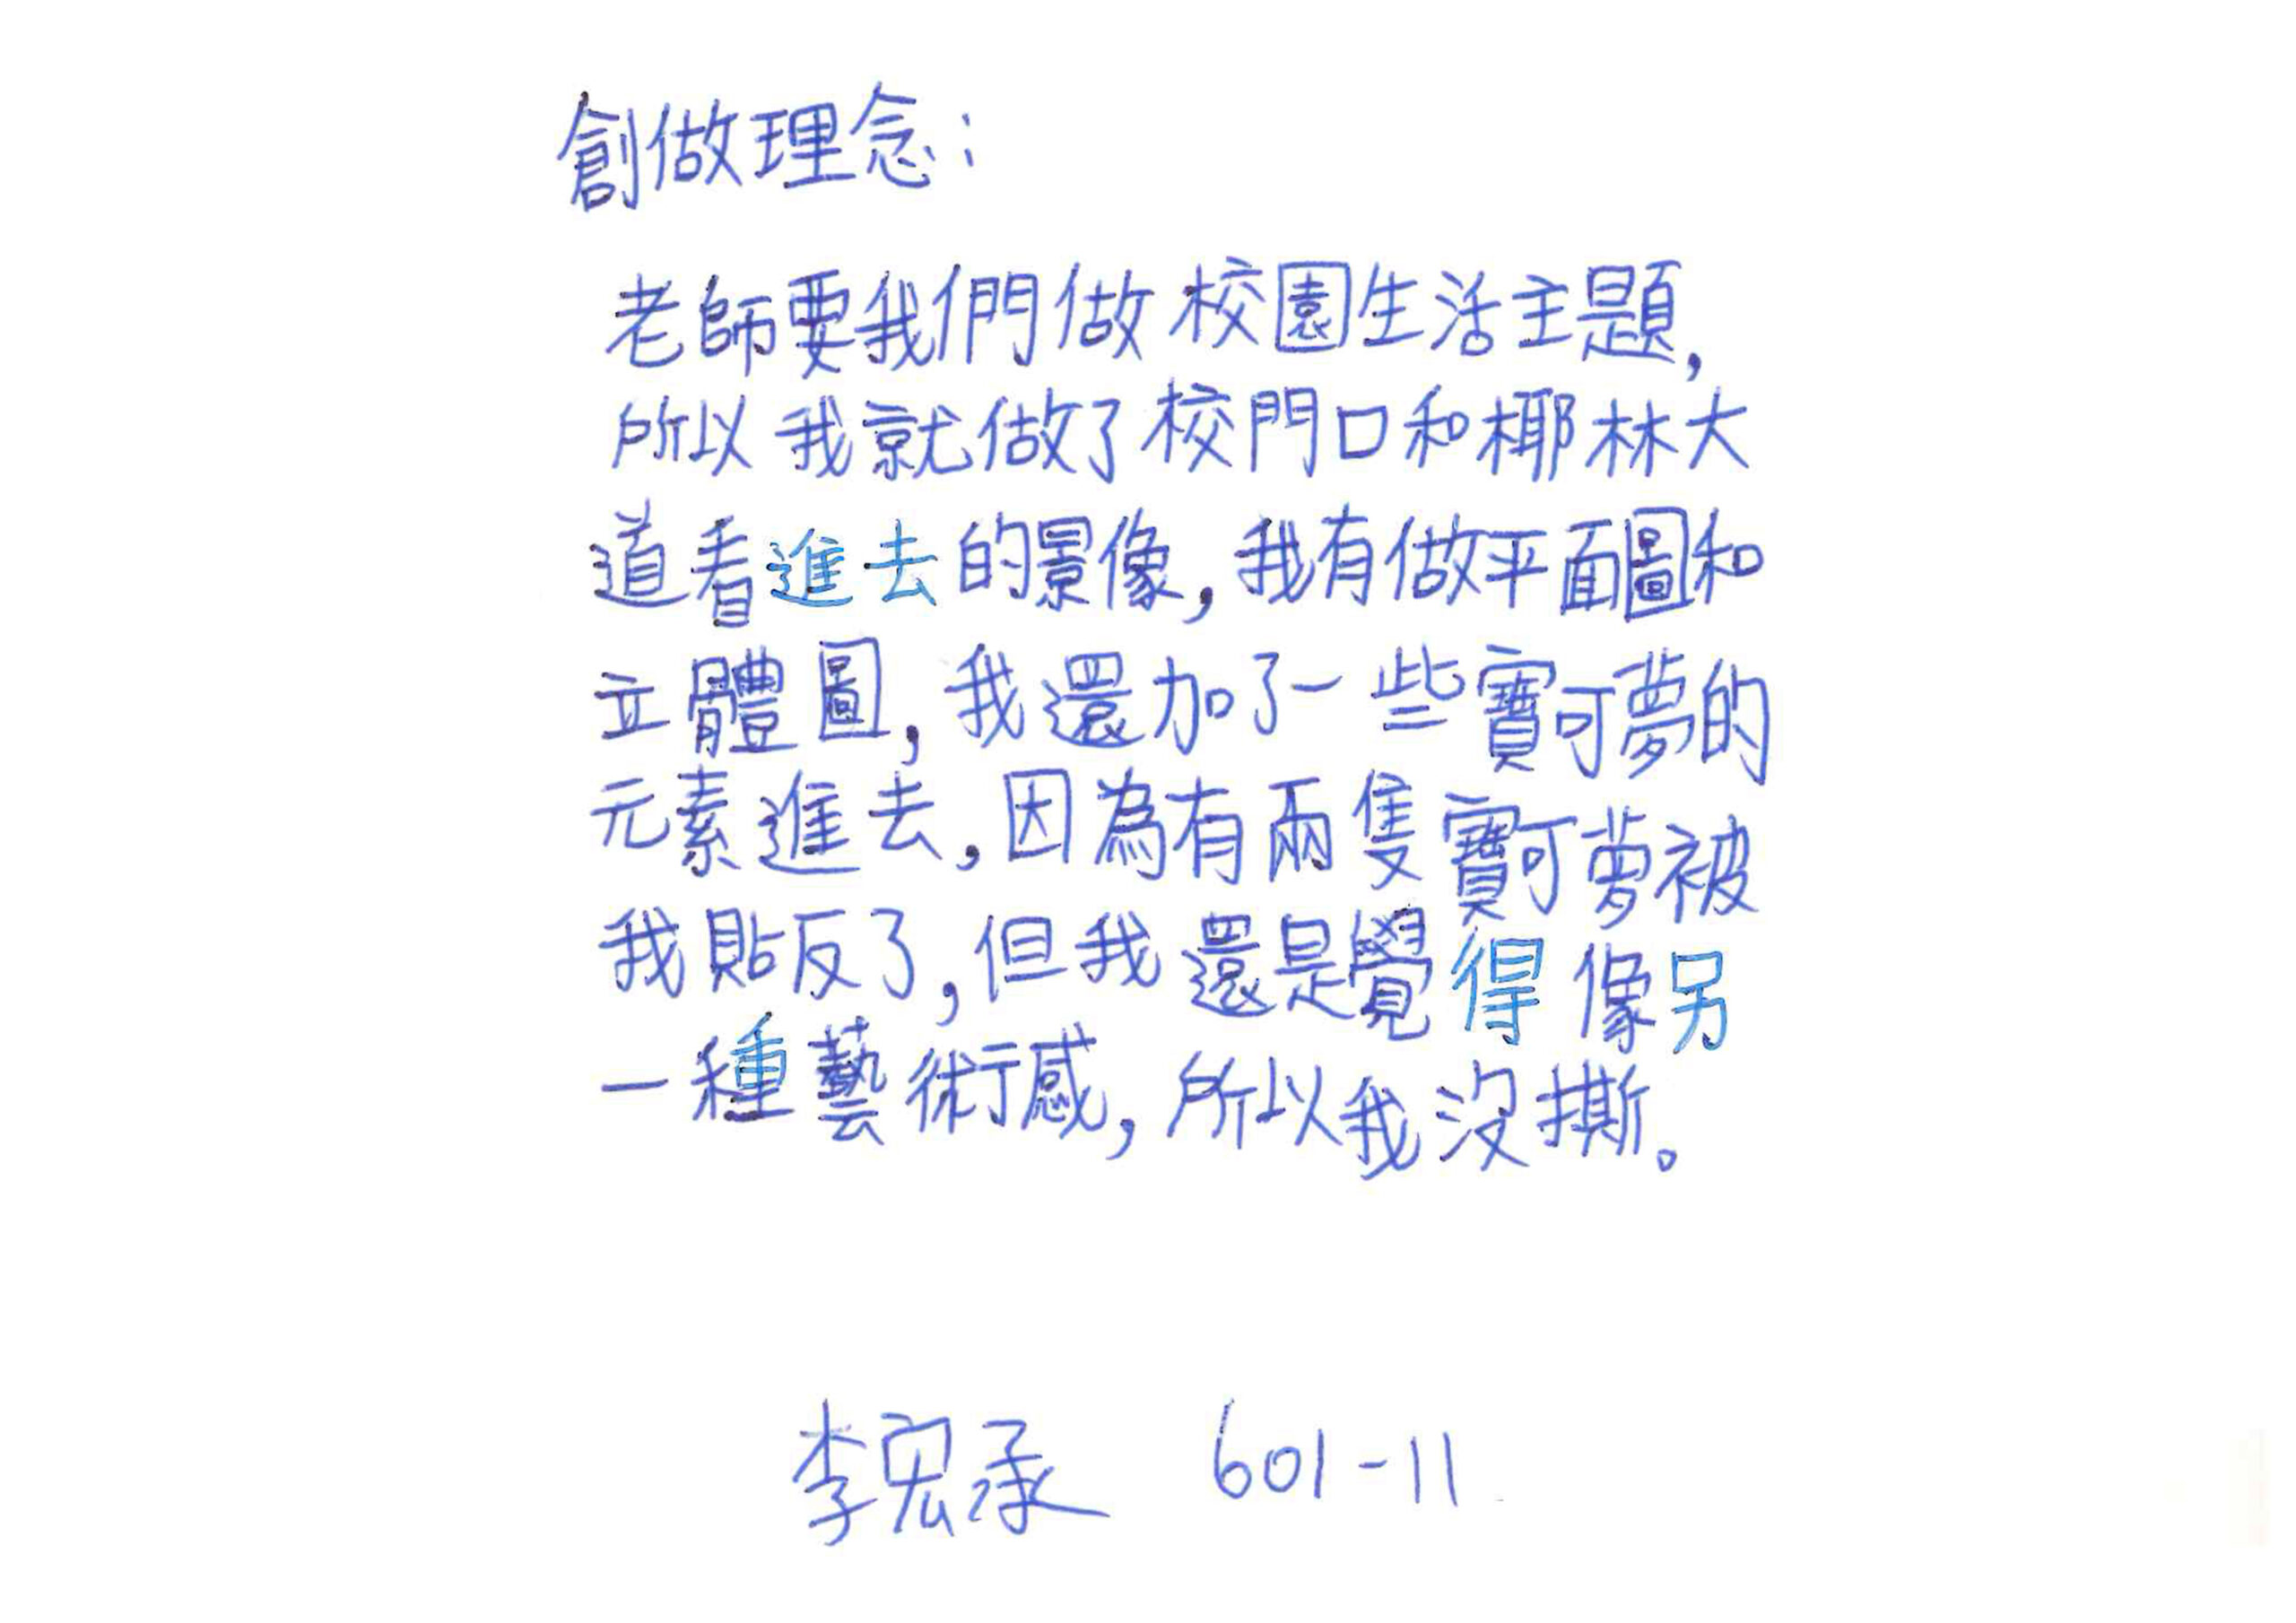 創做理念：
老師要我們做校園生活主題，
所以我就做了校門口和椰林大
道看進去的景像，我有做平面圖和
立體圖，我還加了一些寶可夢的
元素進去，因為有兩隻寶可夢被
我貼反了，但我還是覺得像另
一種藝術感，所以我沒撕。
李宏承 601-11